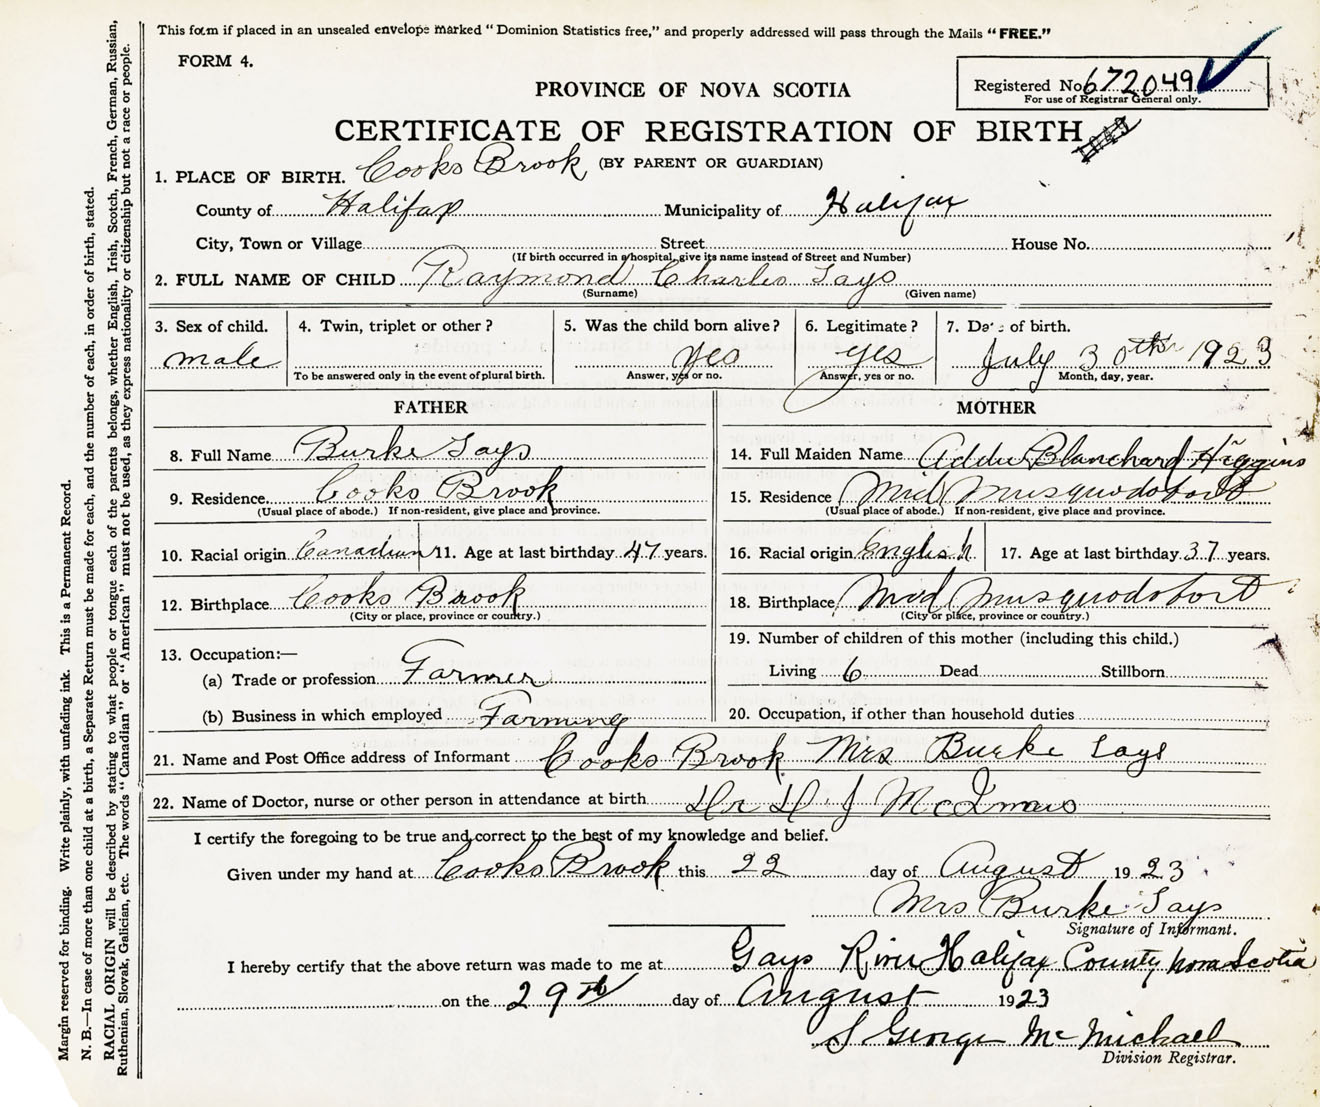 This form if placed in an unsealed envelope marked "Dominion Statistics free," and properly addressed will pass through the Mails "FREE."
FORM 4.
Registered No. 672049
For use of Registrar General only.
PROVINCE OF NOVA SCOTIA
CERTIFICATE OF REGISTRATION OF BIRTH
(BY PARENT OR GUARDIAN)
1. PLACE OF BIRTH. Cooks Brook
County of Halifax Municipality of Halifax
City, Town or Village Street House No.
(If birth occurred in a hospital, give its name instead of Street and Number)
2. FULL NAME OF CHILD Raymond Charles Gays
(Surname) (Given name)
3. Sex of child. 4. Twin, triplet or other? 5. Was the child born alive? 6. Legitimate? 7. Date of birth.
male Yes yes July 30th 1923
To be answered only in the event of plural birth. Answer, yes or no. Answer, yes or no. Month, day, year.
FATHER MOTHER
8. Full Name Burke Gays 14. Full Maiden Name Addie Blanchard Higgins
9. Residence Cooks Brook 15. Residence Mid Musquodoboit
(Usual place of abode.) If non-resident, give place and province. (Usual place of abode.) If non-resident, give place and province.
10. Racial origin Canadian 11. Age at last birthday 47 years. 16. Racial origin English 17. Age at last birthday 37 years.
12. Birthplace Cooks Brook 18. Birthplace Mid Musquodoboit
(City or place, province or country.) (City or place, province or country.)
13. Occupation:— 19. Number of children of this mother (including this child.)
(a) Trade or profession Farmer Living 6 Dead Stillborn
(b) Business in which employed Farming 20. Occupation, if other than household duties
21. Name and Post Office address of Informant Cooks Brook Mrs Burke Gays
22. Name of Doctor, nurse or other person in attendance at birth Dr D J
I certify the foregoing to be true and correct to the best of my knowledge and belief.
Given under my hand at Cooks Brook this 22 day of August 1923
Mrs Burke Gays
Signature of Informant.
I hereby certify that the above return was made to me at Gays River Halifax County Nova Scotia
on the 29th day of August 1923
S George McMichael
Division Registrar.
Margin reserved for binding. Write plainly, with unfading ink. This is a Permanent Record.
N. B.—In case of more than one child at a birth, a Separate Return must be made for each, and the number of each, in order of birth, stated.
RACIAL ORIGIN will be described by stating to what people or tongue each of the parents belongs, whether English, Irish, Scotch, French, German, Russian,
Ruthenian, Slovak, Galician, etc. The words "Canadian" or "American" must not be used, as they express nationality or citizenship but not a race or people.